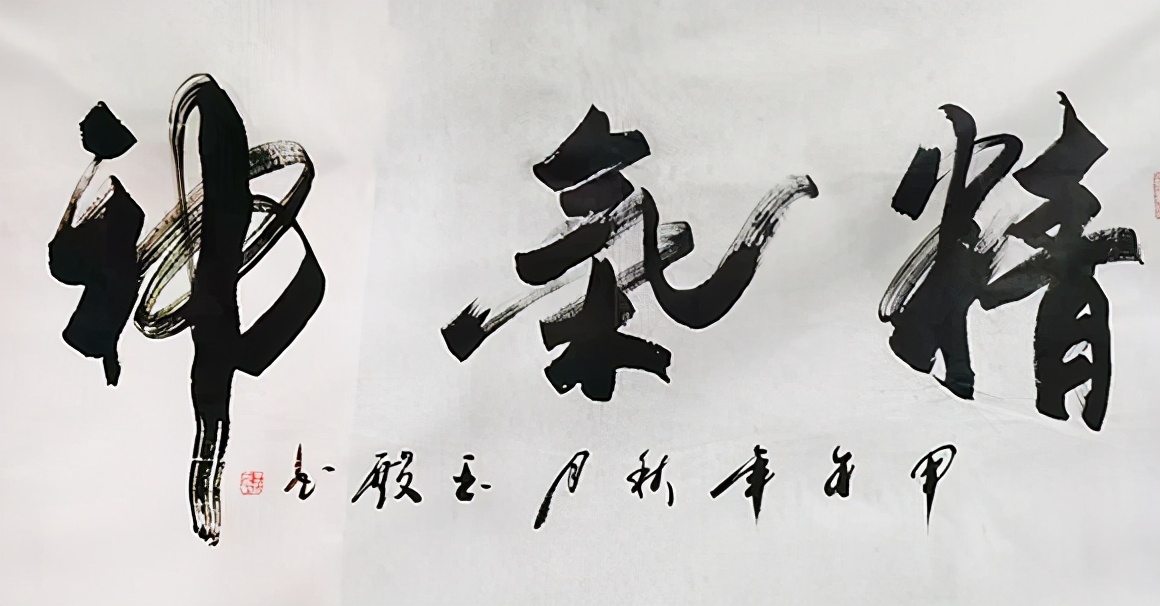 精氣神
甲午年秋月玉殿书